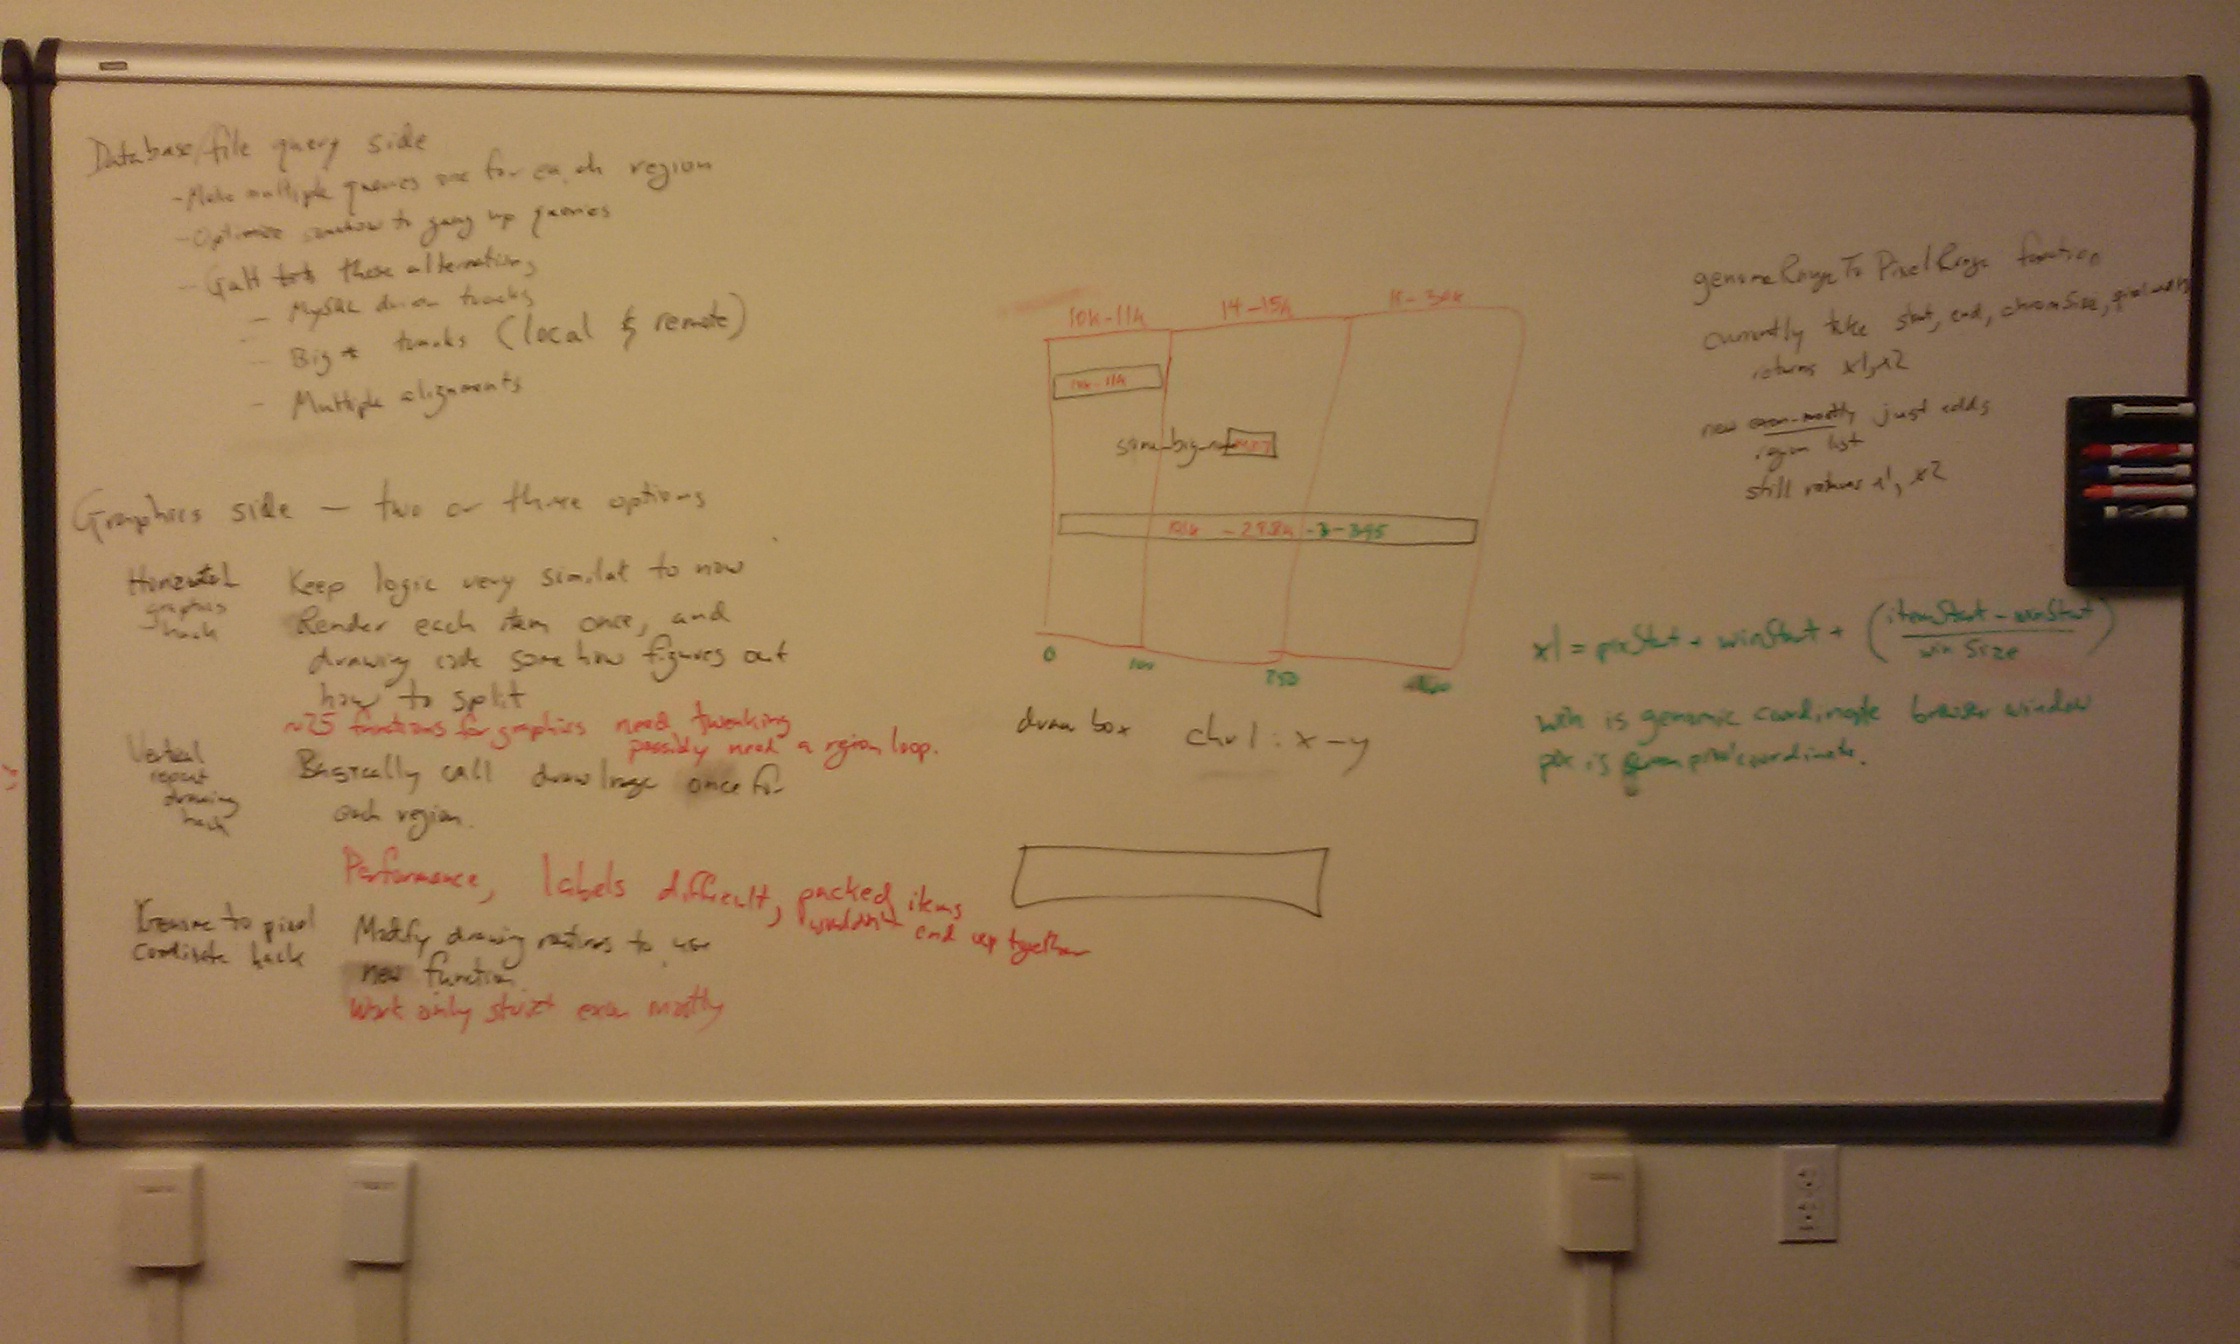 Database/file query side
- Make multiple queries one for each region
- Optimize somehow to gang up queries
- Galt these alternatives
- MySQL driven tracks
- Big * tracks (local & remote)
- Multiple alignments
Graphics side - two or three options
Horizontal
graphics
hack
Keep logic very similar to now
Render each item once, and
drawing code some how figures out
how to split
~25 functions for graphics need tweaking
possibly need a region loop.
Vertical
repeat
drawing
hack
Basically call drawImage once for
each region.
Performance, labels difficult, packed items
wouldn't end up together
Genome to pixel
coordinate hack
Modify drawing routines to use
new function.
Work only strict exon mostly
10k-11k 14-15k
10k-11k
some_big_
-29.8k
0 100 250
draw box chr1: x-y
genomeRangeToPixelRange function
currently take start, end, chromSize,
returns x1, x2
new exon-mostly just adds
region list
still returns x1, x2
x1 = pixStart + winStart + (itemStart - winStart / win Size)
win is genomic coordinate browser window
pix is pixel coordinate.